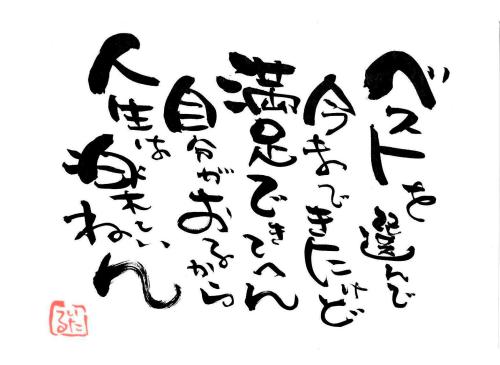 ベストを選んで
今まできたけど
満足できてへん
自分がおるから
人生は楽しいねん